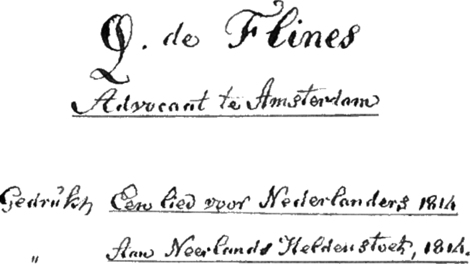 Q. de Flines
Advocaat te Amsterdam
Gedrukt, Een lied voor Nederlanders 1814
„ Aan Neerlands Heldenstoet, 1814.